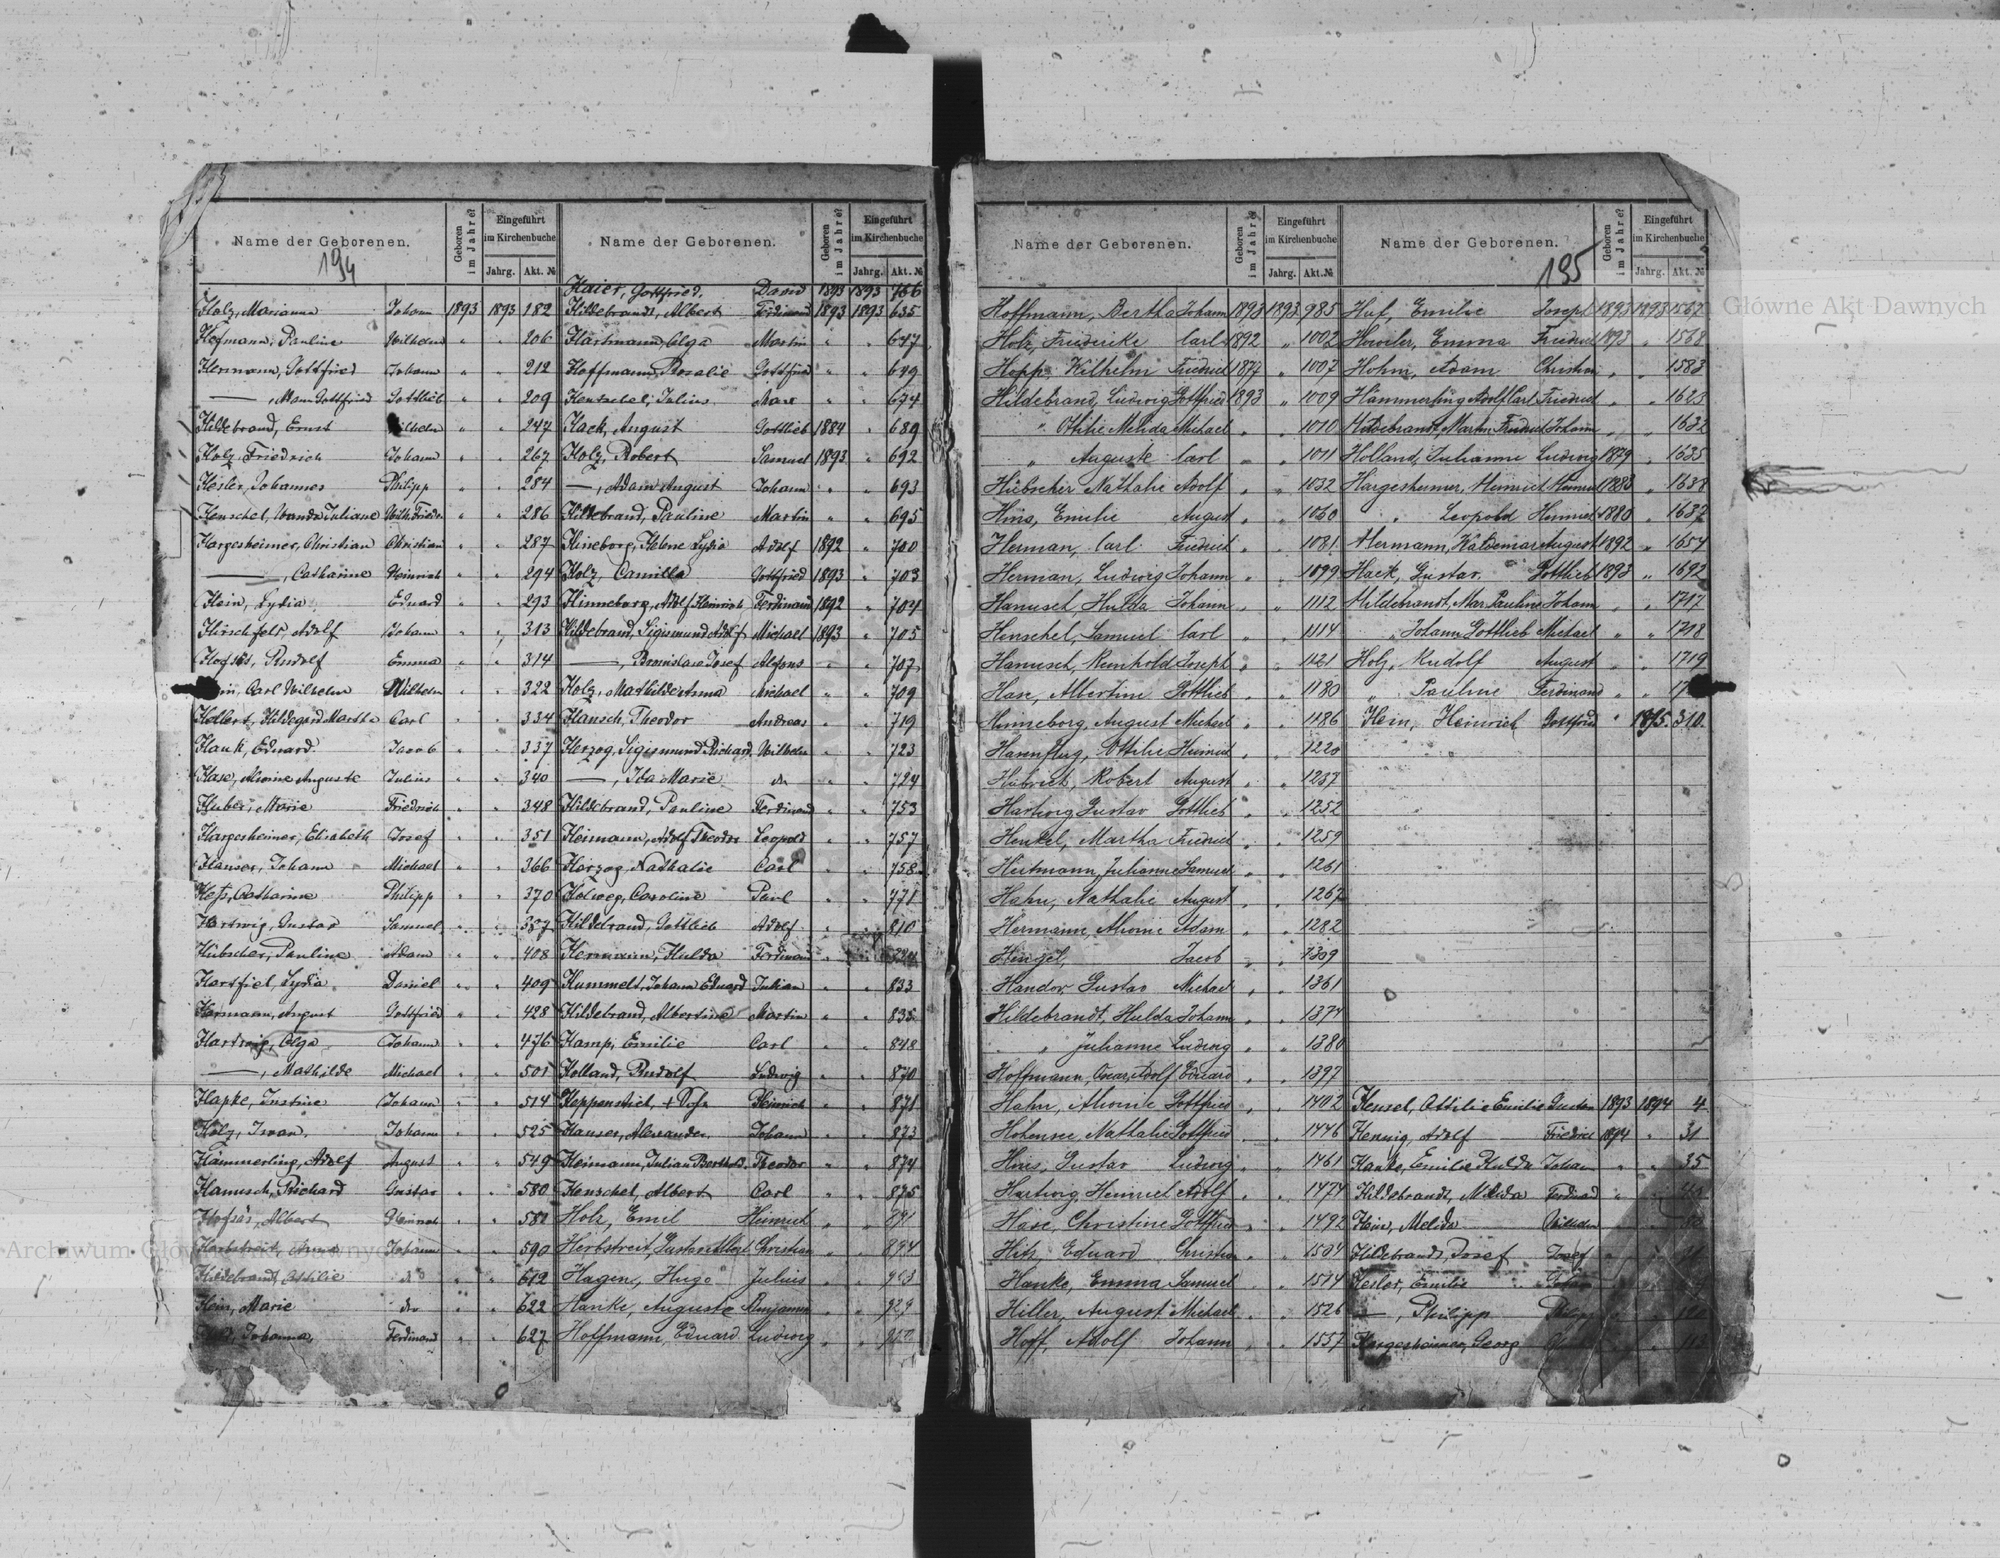 Name der Geborenen. Geboren im Jahre? Eingeführt im Kirchenbuche Jahrg. Akt. № Name der Geborenen. Geboren im Jahre? Eingeführt im Kirchenbuche Jahrg. Akt. №
194
Holz, Marianna Johann 1893 1893 182
Hofmann, Pauline Wilhelm " " 206
Hermann, Gottfried Johann " " 212
—, Gottfried Gottlieb " " 209
Hildebrand, Ernst Wilhelm " " 247
Holz, Friedrich Johann " " 267
Hesler, Johannes Philipp " " 284
Henschel, Wanda Juliane Wilh. Friedr. " " 286
Hargesheimer, Christian Christian " " 287
—, Catharine Heinrich " " 294
Hein, Lydia Eduard " " 293
Hirschfeld, Adolf Johann " " 313
Rudolf Emma " " 314
Carl Wilhelm Wilhelm " " 322
Hildegard Martha Carl " " 334
Hauk, Eduard Jacob " " 337
Hase, Alwine Auguste Julius " " 340
Huber, Marie Friedrich " " 348
Hargesheimer, Elisabeth Josef " " 351
Johann Michael " " 366
Heß, Catharine Philipp " " 370
Hartwig, Gustav Samuel " " 387
Hübscher, Pauline Adam " " 408
Hartfiel, Lydia Daniel " " 409
Hermann, August Gottfried " " 428
Hartwig, Olga Johann " " 476
—, Mathilde Michael " " 501
Hapke, Justine Johann " " 514
Holz, Iwan Johann " " 525
Hämmerling, Adolf August " " 549
Hanusch, Richard Gustav " " 580
Albert Heinrich " "
Herbstreit, Johann " " 590
Hildebrand, Ottilie do " " 612
Hein, Marie do " " 622
Johanna Ferdinand " " 627
Haier, Gottfried. David 1893 1893 766
Hildebrandt, Albert Ferdinand 1893 1893 635
Hartmann, Olga Martin " " 647
Hoffmann, Rosalie Gottfried " " 649
Hentschel, Julius Max " " 674
Hack, August Gottlieb 1884 " 689
Holz, Robert Samuel 1893 " 692
—, Adam August Johann " " 693
Hildebrand, Pauline Martin " " 695
Hineborg, Helene Lydia Adolf 1892 " 700
Holz, Camilla Gottfried 1893 " 703
Hinneborg, Adolf Heinrich Ferdinand 1892 " 704
Hildebrand, Sigismund Adolf Michael 1893 " 705
—, Bronislaw Josef Alfons " " 707
Holz, Mathilde Anna Michael " " 709
Hansch, Theodor Andreas " " 719
Herzog, Sigismund Richard Wilhelm " " 723
—, Ida Marie do " " 724
Hildebrand, Pauline Ferdinand " " 753
Heimann, Adolf Theodor Leopold " " 757
Herzog, Nathalie Carl " " 758
Caroline Paul " " 771
Hildebrand, Gottlieb Adolf " " 810
Hermann, Hulda Ferdinand " "
Hummelt, Johann Eduard Julian " " 833
Hildebrand, Albertine Martin " " 835
Hamp, Emilie Carl " " 848
Holland, Rudolf Ludwig " " 870
Heppenstiel, + Sohn Heinrich " " 871
Hauser, Alexander Johann " " 873
Heimann, Julian Berthold Theodor " " 874
Henschel, Albert Carl " " 875
Holz, Emil Heinrich " " 891
Herbstreit, Gustav Albert Christian " " 894
Hagen, Hugo Julius " "
Hanke, Auguste Benjamin " " 929
Hoffmann, Eduard Ludwig " "
Name der Geborenen. Geboren im Jahre? Eingeführt im Kirchenbuche Jahrg. Akt. № Name der Geborenen. Geboren im Jahre? Eingeführt im Kirchenbuche Jahrg. Akt. №
195
Hoffmann, Bertha Johann 1893 1893 985
Holz, Friedericke Carl 1892 " 1002
Hopp, Wilhelm Friedrich 1877 " 1007
Hildebrand, Ludwig Gottfried 1893 " 1009
" Ottilie Melida Michael " " 1010
" Auguste Carl " " 1011
Hübscher Nathalie Adolf " " 1032
Hins, Emilie August " " 1060
Herman, Carl Friedrich " " 1081
Herman, Ludwig Johann " " 1099
Hanusch, Hulda Johann " " 1112
Henschel, Samuel Carl " " 1114
Hanusch, Reinhold Joseph " " 1121
Hase, Albertine Gottlieb " " 1180
Hinneborg, August Michael " " 1186
Ottilie Heinrich " " 1220
Hübrich, Robert August " " 1237
Hartwig Gustav Gottlieb " " 1252
Henkel, Martha Friedrich " " 1259
Heitmann, Julianne Samuel " " 1261
Hahn, Nathalie August " " 1267
Hermann, Alwine Adam " " 1282
Hingel, Jacob " " 1309
Handor Gustav Michael " " 1361
Hildebrandt, Hulda Johann " " 1374
" " Julianne Ludwig " " 1380
Hoffmann, Oscar Adolf Eduard " " 1397
Hahn, Alwine Gottfried " " 1402
Hohensee Nathalie Gottfried " " 1446
Hins, Gustav Ludwig " " 1461
Hartwig, Heinrich Adolf " " 1474
Hase, Christine Gottfried " " 1492
Hitz, Eduard Christian " " 1504
Hanke, Emma Samuel " " 1514
Hiller, August Michael " " 1526
Hoff, Adolf Johann " " 1557
Huf, Emilie Joseph 1893 1893 1567
Emma Friedrich 1893 " 1568
Hohm, Adam Christian " " 1583
Hämmerling Adolf Carl Friedrich " " 1623
Hildebrandt, Martin Friedrich Johann " " 1632
Holland, Julianne Ludwig 1879 " 1635
Hargesheimer, Heinrich Heinrich 1883 " 1638
" Leopold Heinrich 1880 " 1637
Hermann, Waldemar August 1892 " 1654
Hack, Gustav Gottlieb 1893 " 1692
Hildebrandt, Mar. Pauline Johann " " 1717
" Johann Gottlieb Michael " " 1718
Holz, Rudolf August " " 1719
" Pauline Ferdinand " "
Hein, Heinrich Gottfried " 1895. 310.
Hensel, Ottilie Emilie Gustav 1893 1894 4
Hennig, Adolf Friedrich 1894 " 31
Hanke, Emilie Hulda Johan " " 35
Hildebrandt, Melida Ferdinand " "
Hein, Melida Wilhelm
Hildebrandt, Josef Josef
Hesler, Emilie Johann
—, Philipp Philipp
Hargesheimer, Georg 113
Archiwum Główne Akt Dawnych
Archiwum Główne Akt Dawnych